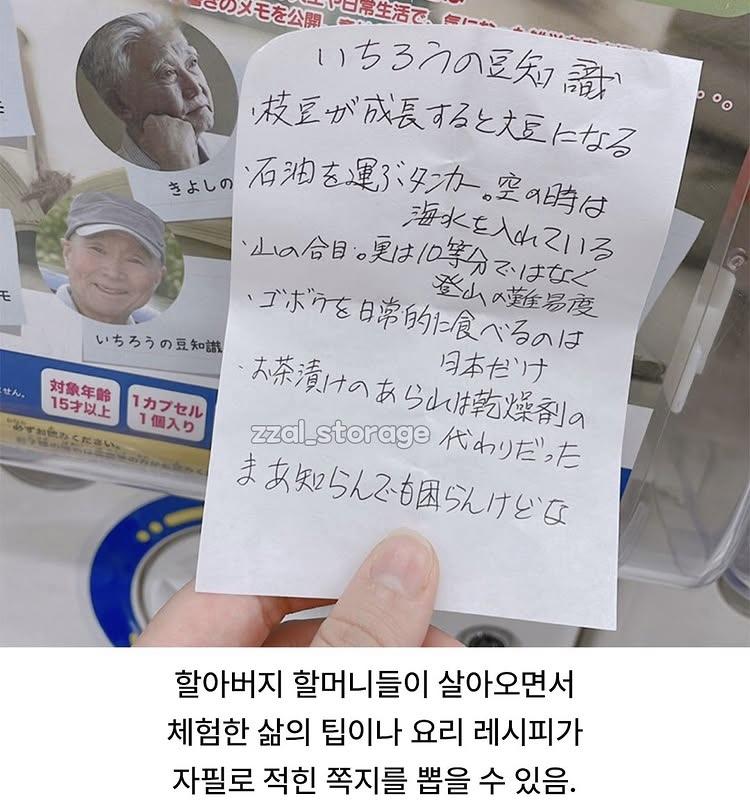 書きのメモを公開
や日常生活で、気に
いちろうの豆知識
・枝豆が成長すると大豆になる
・石油を運ぶタンカー。空の時は
海水を入れている
・山の合目。実は10等分ではなく
登山の難易度
・ゴボウを日常的に食べるのは
日本だけ
・お茶漬けのあられは乾燥剤の
代わりだった
まあ知らんでも困らんけどな
きよしの
いちろうの豆知識
対象年齢
15才以上
1カプセル
1個入り
必ずお読みください。
zzal_storage
할아버지 할머니들이 살아오면서
체험한 삶의 팁이나 요리 레시피가
자필로 적힌 쪽지를 뽑을 수 있음.